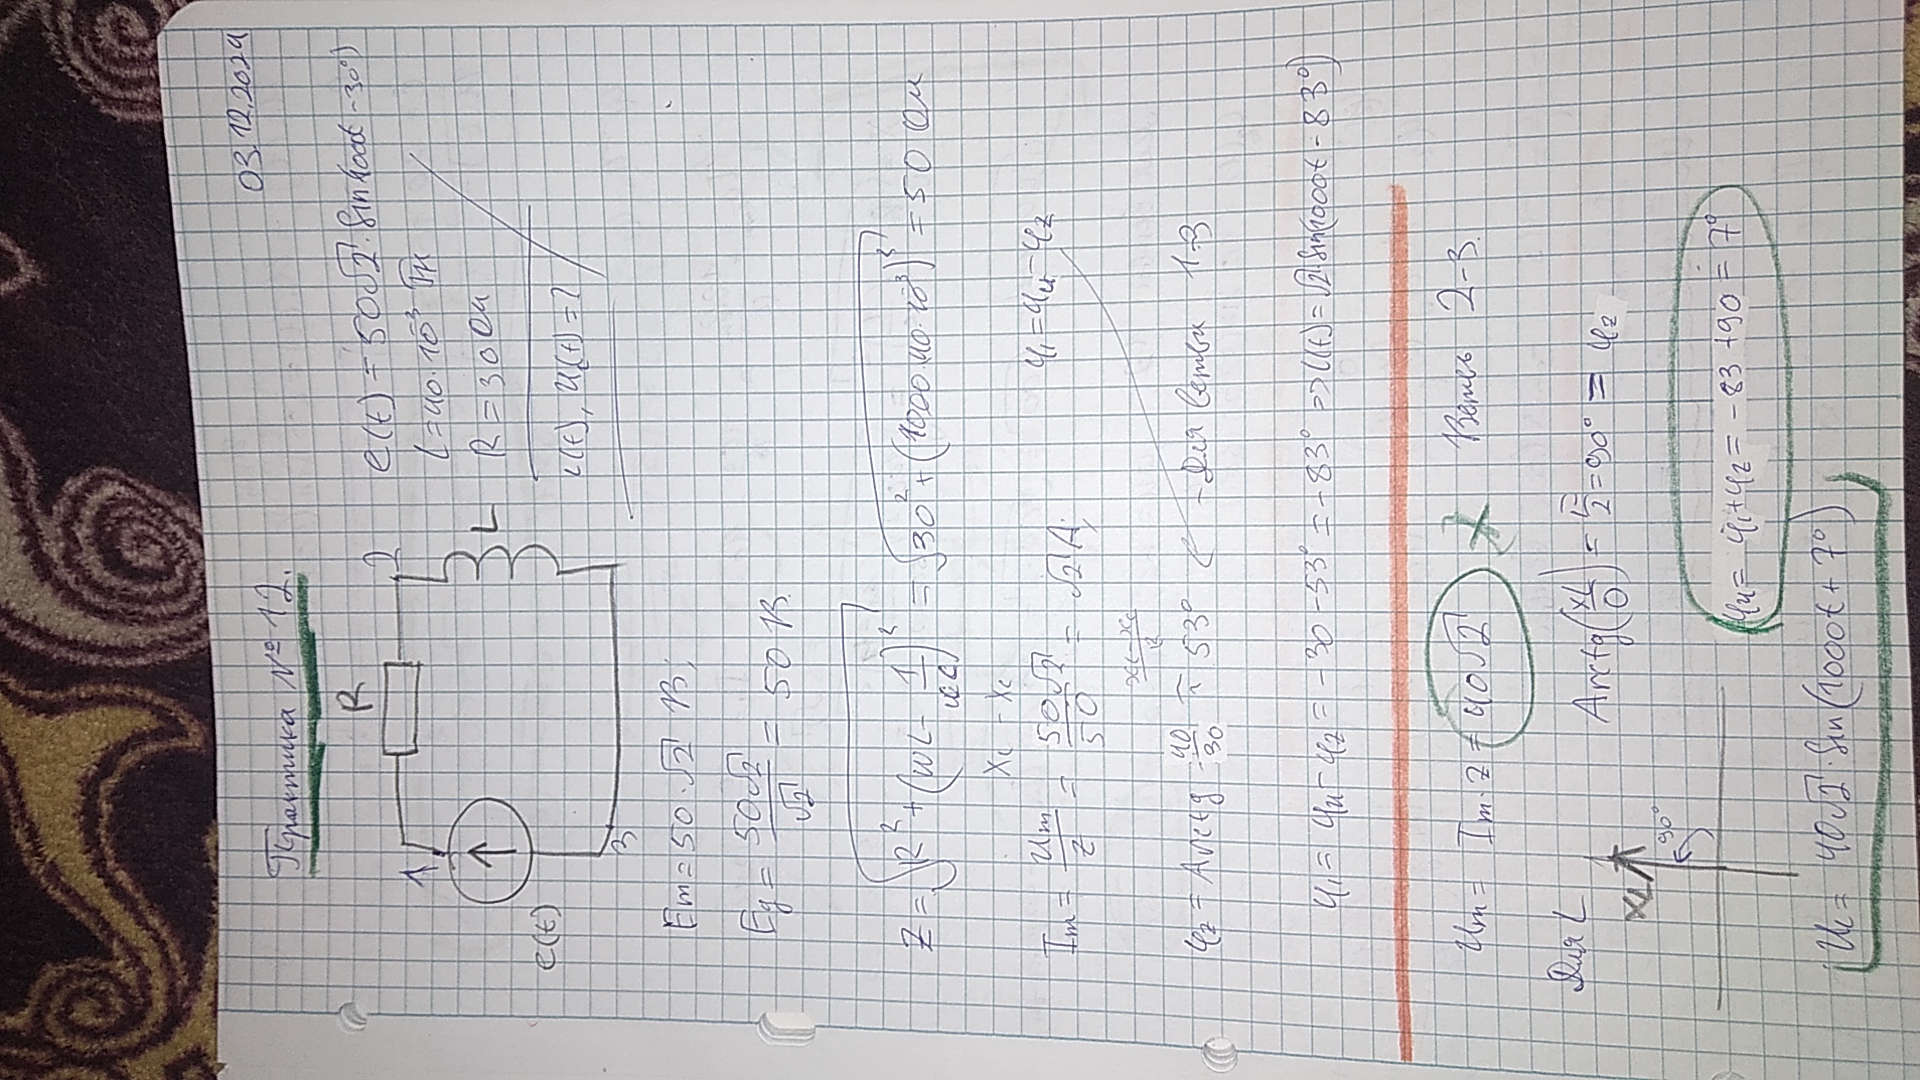 03.12.2024
Практика № 12.
R
1
2
L
e(t)
3
e(t) = 50√2 · Sin(1000t - 30°)
L = 40 · 10⁻³ Гн
R = 30 Ом
i(t), u(t) = ?
Em = 50 · √2 В;
Eg = 50√2/√2 = 50 В.
Z = √(R² + (ωL - 1/ωC)²) = √(30² + (1000 · 40 · 10⁻³)²) = 50 Ом
XL - Xc
Im = Um/Z = 50√2/50 = √2 A;
φi = φu - φz
XL - Xc/R
φz = Arctg 40/30 ≈ 53° - Для ветви 1-3
φi = φu - φz = -30 - 53° = -83° => i(t) = √2 · Sin(1000t - 83°)
Um = Im · Z = 40√2 Ветвь 2-3.
Для L
Arctg(XL/0) = π/2 = 90° = φz
XL
90°
φu = φi + φz = -83 + 90 = 7°
UL = 40√2 · Sin(1000t + 7°)